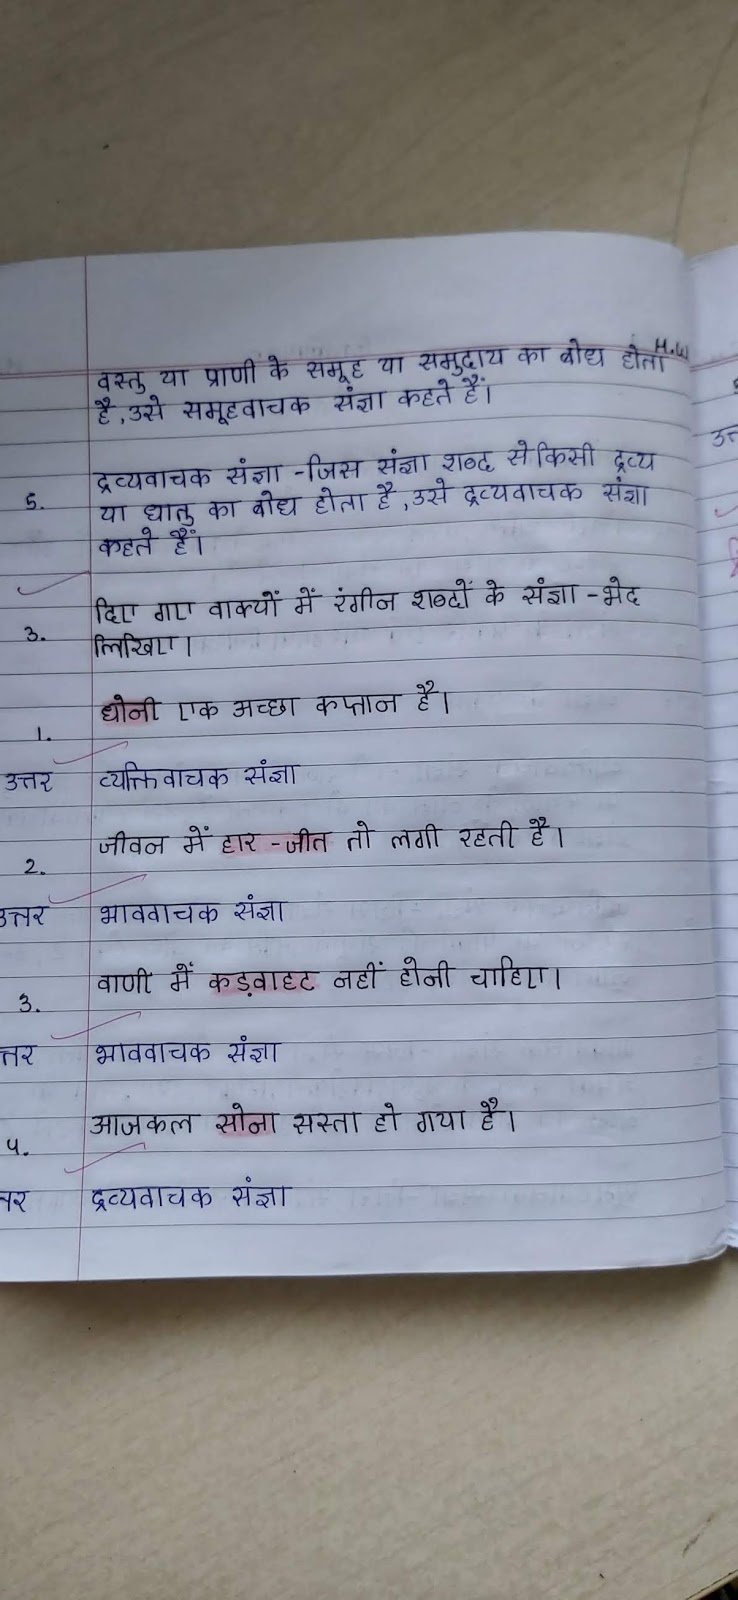 H.W
वस्तु या प्राणी के समूह या समुदाय का बोध होता
है, उसे समूहवाचक संज्ञा कहते हैं।
5. द्रव्यवाचक संज्ञा - जिस संज्ञा शब्द से किसी द्रव्य
या धातु का बोध होता है, उसे द्रव्यवाचक संज्ञा
कहते हैं।
3. दिए गए वाक्यों में रंगीन शब्दों के संज्ञा - भेद
लिखिए।
1. धोनी एक अच्छा कप्तान है।
उत्तर व्यक्तिवाचक संज्ञा
2. जीवन में हार - जीत तो लगी रहती है।
उत्तर भाववाचक संज्ञा
3. वाणी में कड़वाहट नहीं होनी चाहिए।
त्तर भाववाचक संज्ञा
4. आजकल सोना सस्ता हो गया है।
त्तर द्रव्यवाचक संज्ञा